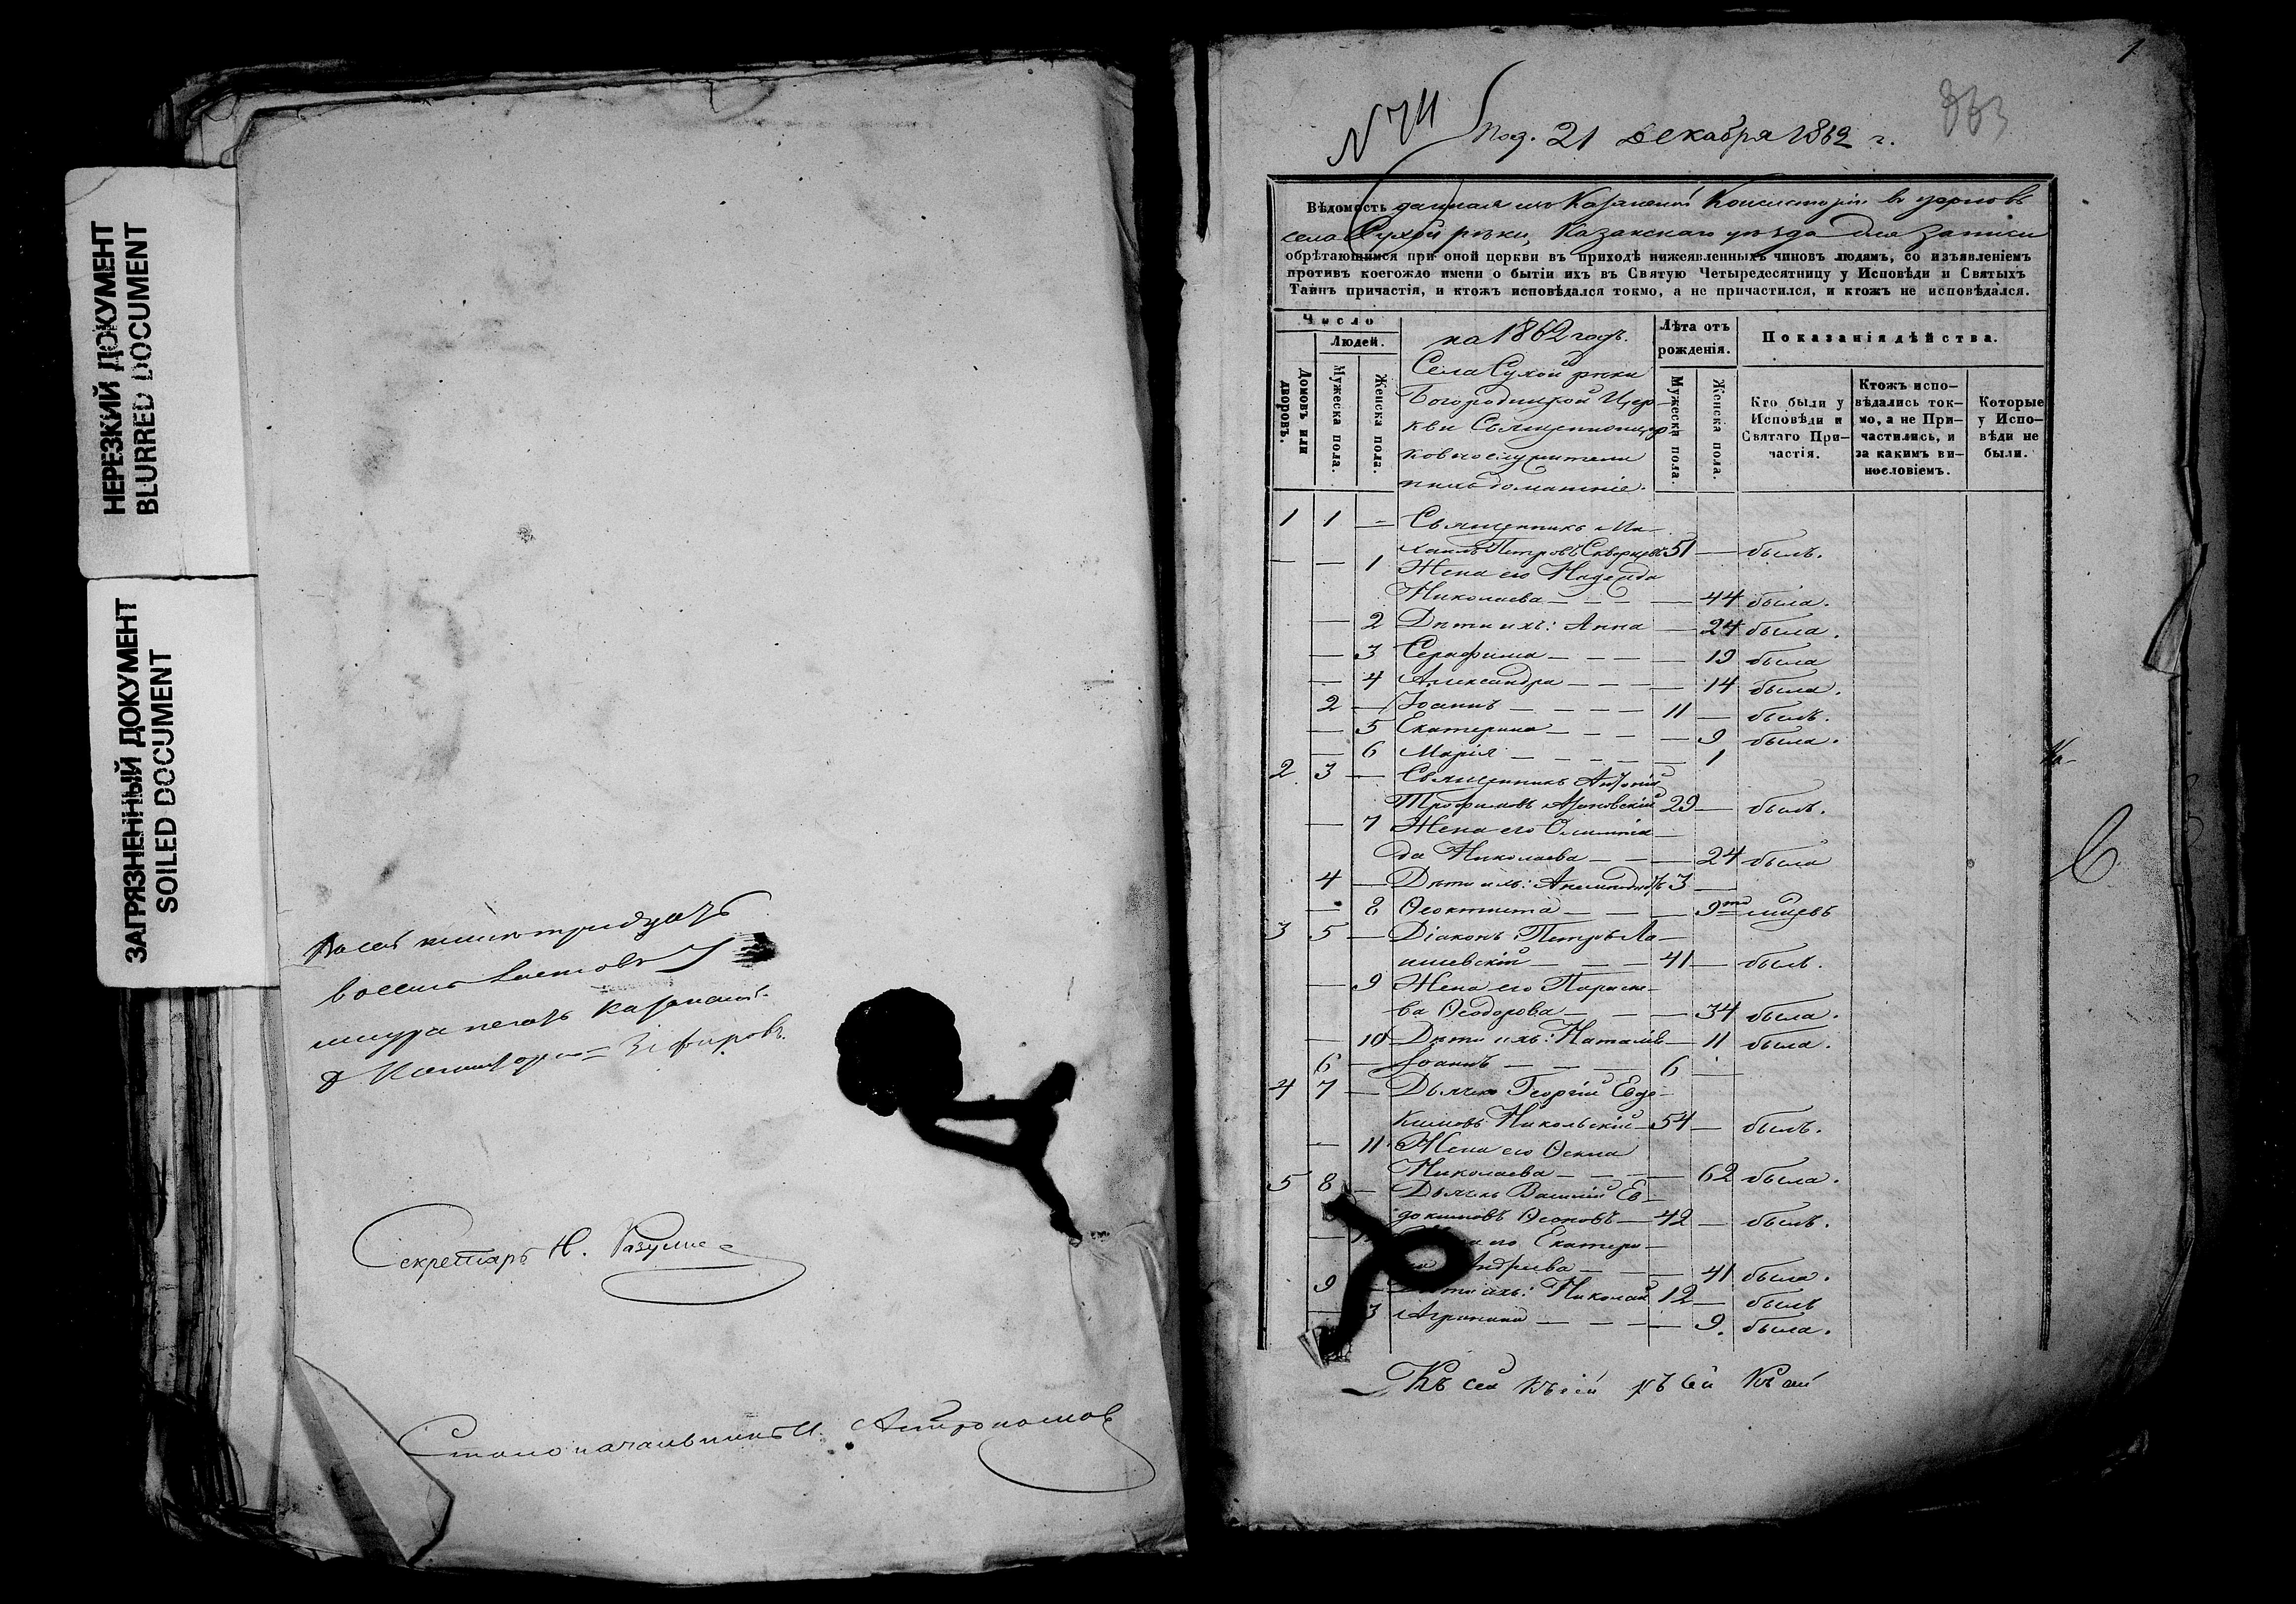 НЕРЕЗКИЙ ДОКУМЕНТ
BLURRED DOCUMENT
ЗАГРЯЗНЕННЫЙ ДОКУМЕНТ
SOILED DOCUMENT
восемь листовъ
печать Казанской
Консисторіи Зефировъ.
Секретарь Н. Разумов
Столоначальникъ И. Астрономов
1
N 711
Под. 21 декабря 1862 г.
Вѣдомость данная изъ Казанской Консисторіи въ церковь
села Сухой рѣки, Казанскаго уѣзда для записи
обрѣтающимся при оной церкви въ приходѣ нижеявленныхъ чиновъ людямъ, со изъявленіемъ
противъ коегождо имени о бытіи ихъ въ Святую Четыредесятницу у Исповѣди и Святыхъ
Таинъ причастія, и ктожъ исповѣдался токмо, а не причастился, и ктожъ не исповѣдался.
Число
Людей.
Домовъ или дворовъ.
Мужеска пола.
Женска пола.
на 1862 годъ.
Села Сухой рѣки
Богородицкой Цер-
кви Священноцер-
ковнослужители
и ихъ домашніе.
Лѣта отъ рожденія.
Мужеска пола.
Женска пола.
Показанія дѣйства.
Кто были у Исповѣди и Святаго При-частія.
Ктожъ испо-вѣдались ток-мо, а не При-частились, и за какимъ ви-нословіемъ.
Которые у Испо-вѣди не были.
1 1 — Священникъ Ми-
хаилъ Петровъ Скворцовъ 51 — былъ.
— — 1 Жена его Надежда
Николаева — — — — 44 была.
— 2 Дѣти ихъ: Анна — 24 была.
— 3 Серафима — — — — 19 была
— 4 Александра — — — — 14 была.
2 — Іоаннъ — — — — 11 — былъ.
— 5 Екатерина — — — — 9 была.
— 6 Марія — — — — — 1
2 3 — Священникъ Антоній
Трофимовъ 29 — былъ.
— 7 Жена его Олимпіа-
да Николаева — — — 24 была
4 — Дѣти ихъ: Александръ 3 —
— 8 Ѳеоктиста — — — 9ти мѣсяцевъ
3 5 — Діаконъ Петръ Ла-
ишевскій — — — 41 — былъ.
— 9 Жена его Параске-
ва Ѳеодорова — — — 34 была.
— 10 Дѣти ихъ: Наталія — 11 была.
6 — Іоаннъ — — — 6 —
4 7 — Дьячекъ Георгій Евдо-
кимовъ Никольскій 54 — былъ.
— 11 Жена его Ѳекла
Николаева — — — — 62 была.
5 8 — Дьячекъ Василій Ев-
докимовъ 42 — былъ.
его Екатери-
на Андреева — — — 41 была.
9 Дѣти ихъ: Николай 12 — былъ
3 Агрипина — — — — 9. была.
Къ сей къ сей къ сей къ сей